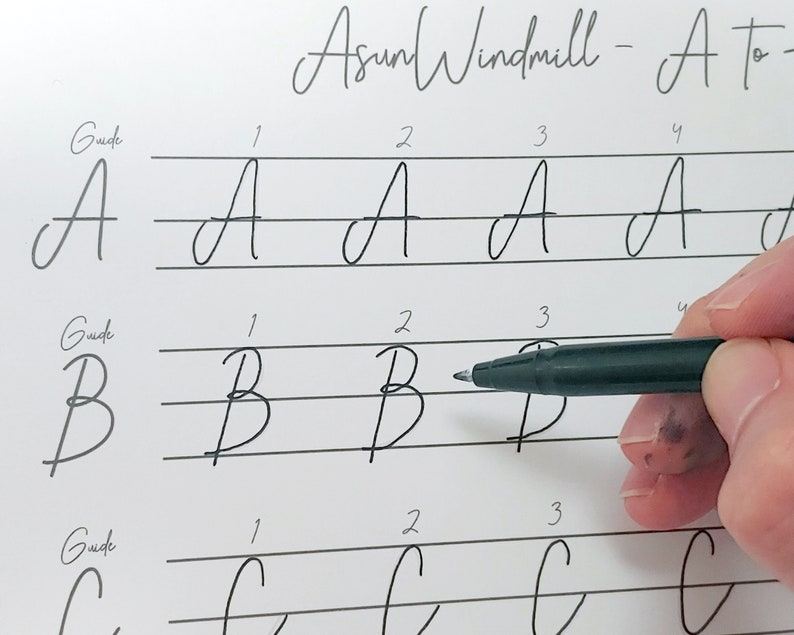 AsunWindmill - A to -
Guide 1 2 3 4
A A A A A A
Guide 1 2 3 4
B B B B
Guide 1 2 3
C C C C C